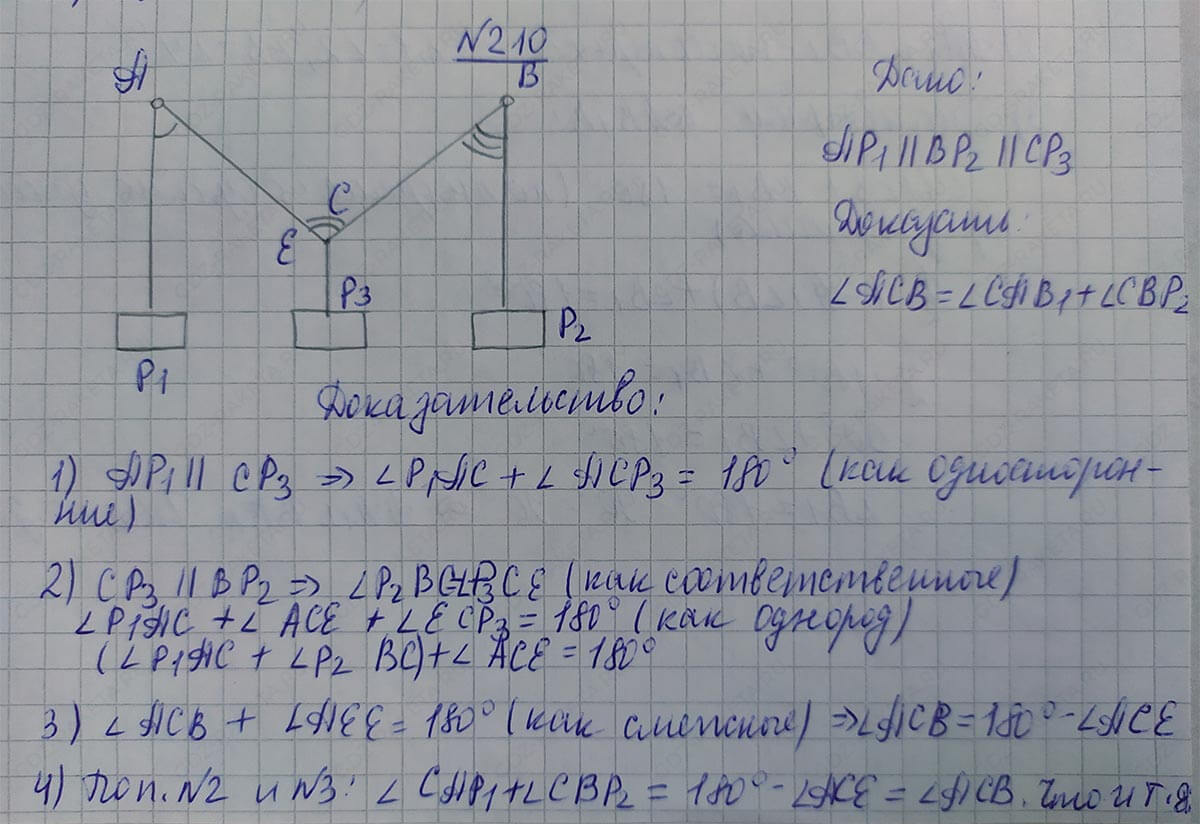 N210
A
B
Дано:
AP1 || BP2 || CP3
Доказать:
∠ACB = ∠CAB1 + ∠CBP2
C
E
P3
P2
P1
Доказательство:
1) AP1 || CP3 ⇒ ∠P1AC + ∠ ACP3 = 180° (как односторон-
ние)
2) CP3 || BP2 ⇒ ∠P2BC=∠P3CE (как соответственные)
∠P1AC + ∠ ACE + ∠ECP3 = 180° (как однород)
(∠P1AC + ∠P2 BC) + ∠ ACE = 180°
3) ∠ACB + ∠AEE = 180° (как смежные) ⇒ ∠ACB = 180° - ∠ACE
4) По п. N2 и N3: ∠CAP1 + ∠CBP2 = 180° - ∠ACE = ∠ACB. Что и т.д.